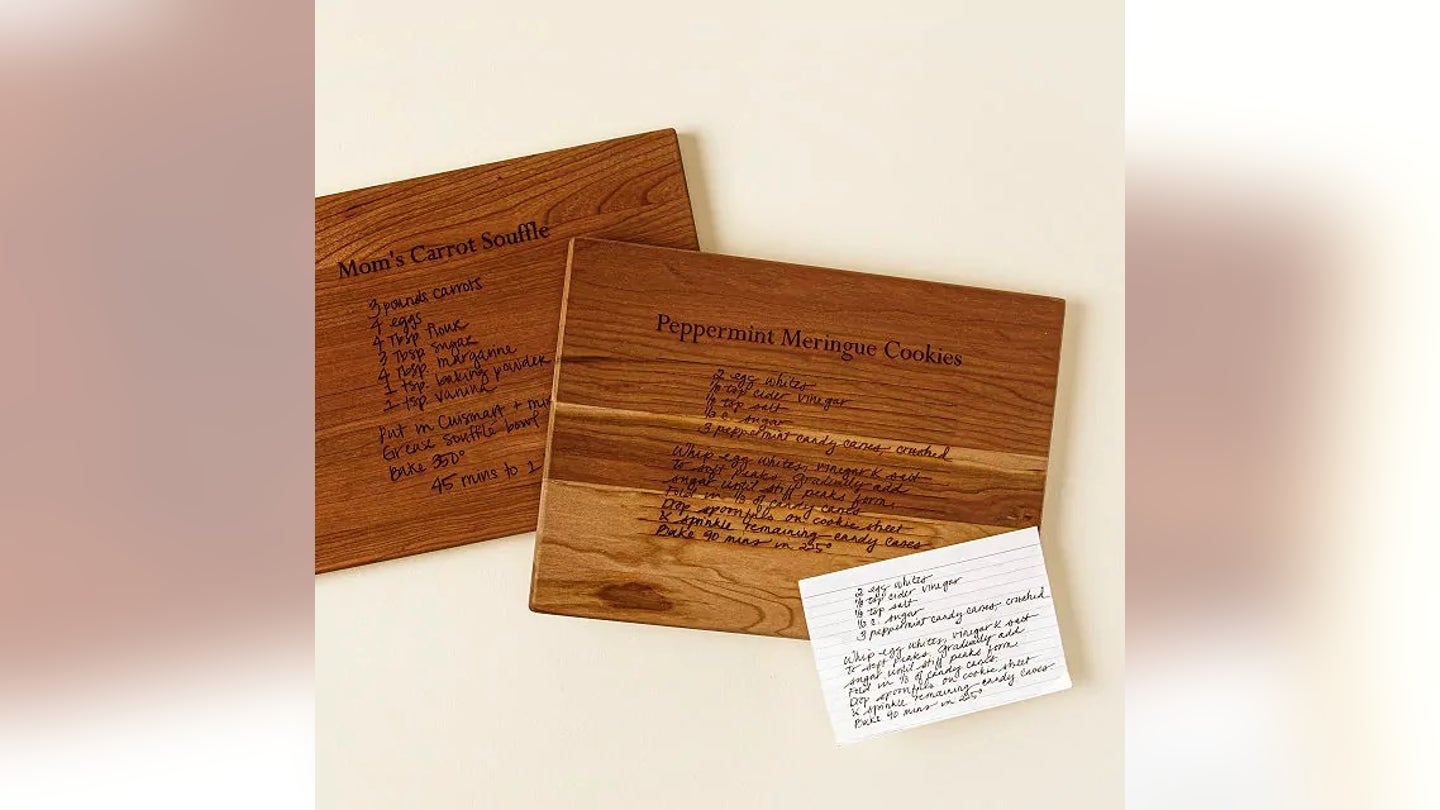 Mom's Carrot Souffle
3 pounds carrots
4 eggs
4 Tbsp flour
3 Tbsp sugar
4 Tbsp. margarine
1 tsp. baking powder
1 tsp vanilla
Put in Cuisinart +
Grease souffle bowl
Bake 350°
45 mins to 1
Peppermint Meringue Cookies
2 egg whites
tsp cider vinegar
tsp salt
c. sugar
3 peppermint candy canes, crushed
Whip egg whites, vinegar & salt
to soft peaks, gradually add
sugar until stiff peaks form.
Fold in of candy canes
Drop spoonfuls on cookie sheet
& sprinkle remaining candy canes
Bake 90 mins in 225°
2 egg whites
tsp cider vinegar
tsp salt
c. sugar
3 peppermint candy canes, crushed
Whip egg whites, vinegar & salt
to soft peaks, gradually add
sugar until stiff peaks form.
Fold in of candy canes
Drop spoonfuls on cookie sheet
& sprinkle remaining candy canes
Bake 90 mins in 225°